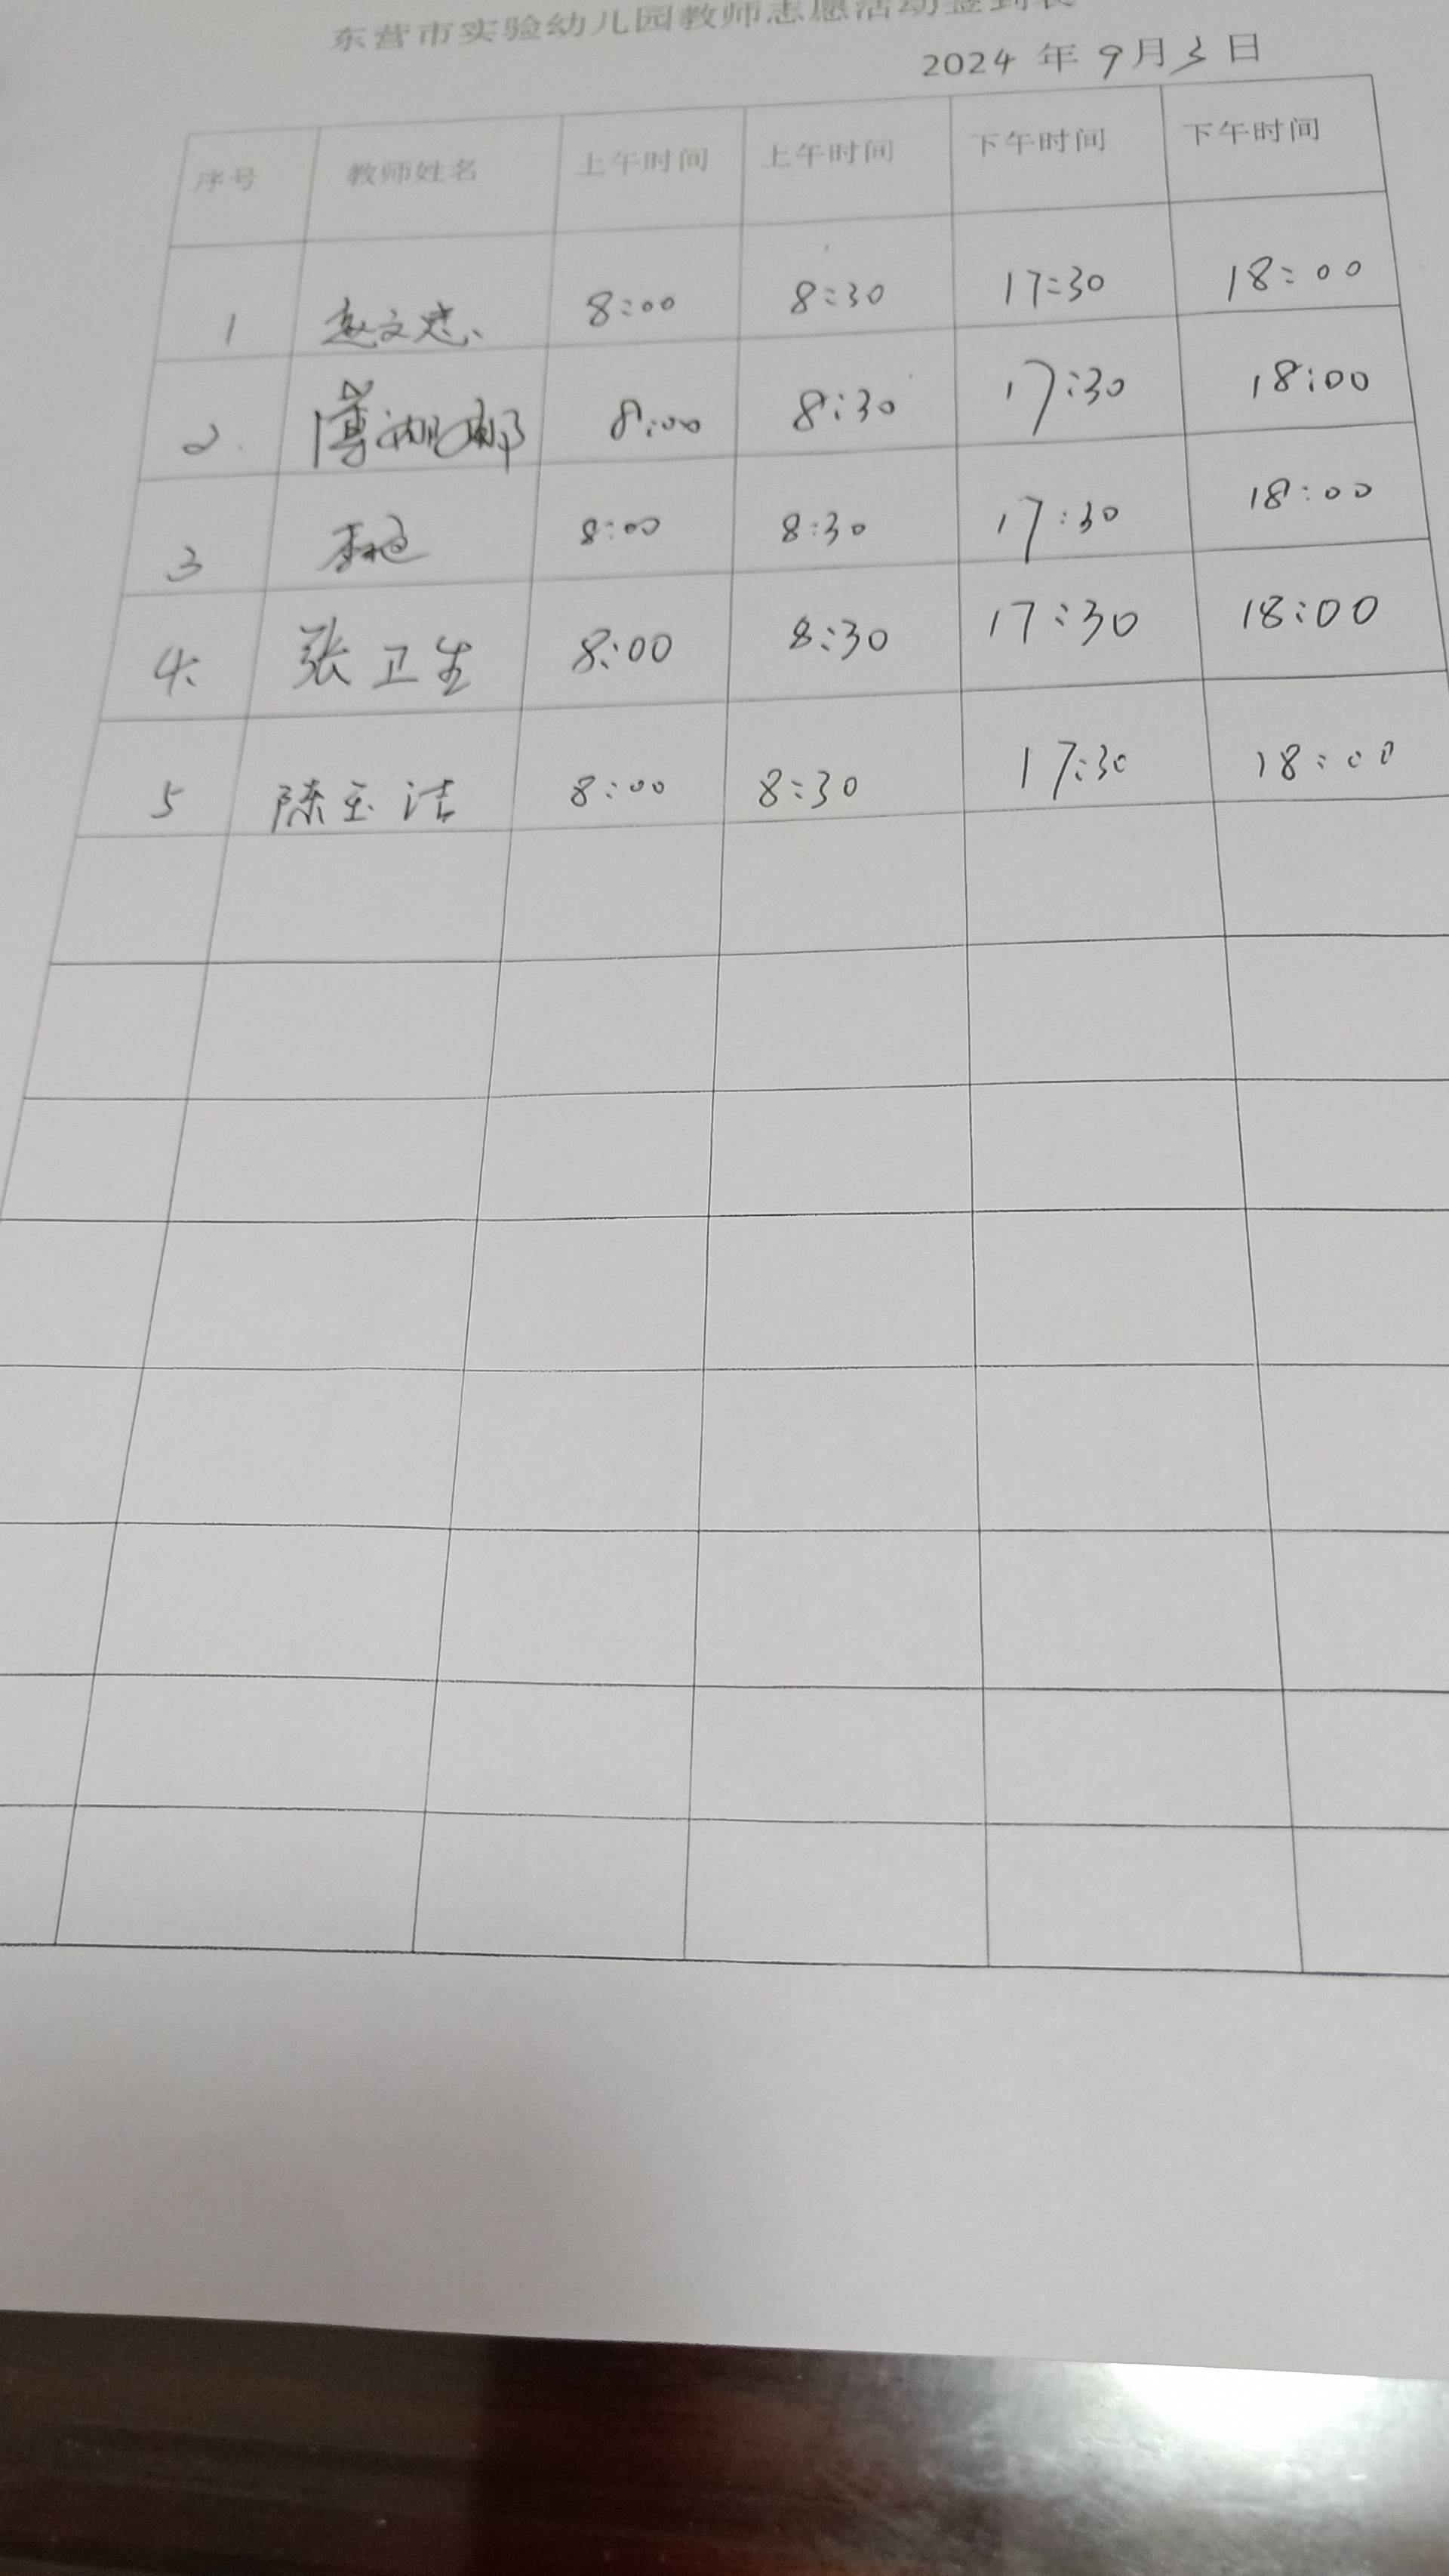 东营市实验幼儿园教师志愿活动签到表
2024 年 9月3日
序号 教师姓名 上午时间 上午时间 下午时间 下午时间
1 赵文忠 8:00 8:30 17:30 18:00
2. 8:00 8:30 17:30 18:00
3 8:00 8:30 17:30 18:00
4. 张卫生 8:00 8:30 17:30 18:00
5 陈玉洁 8:00 8:30 17:30 18:00